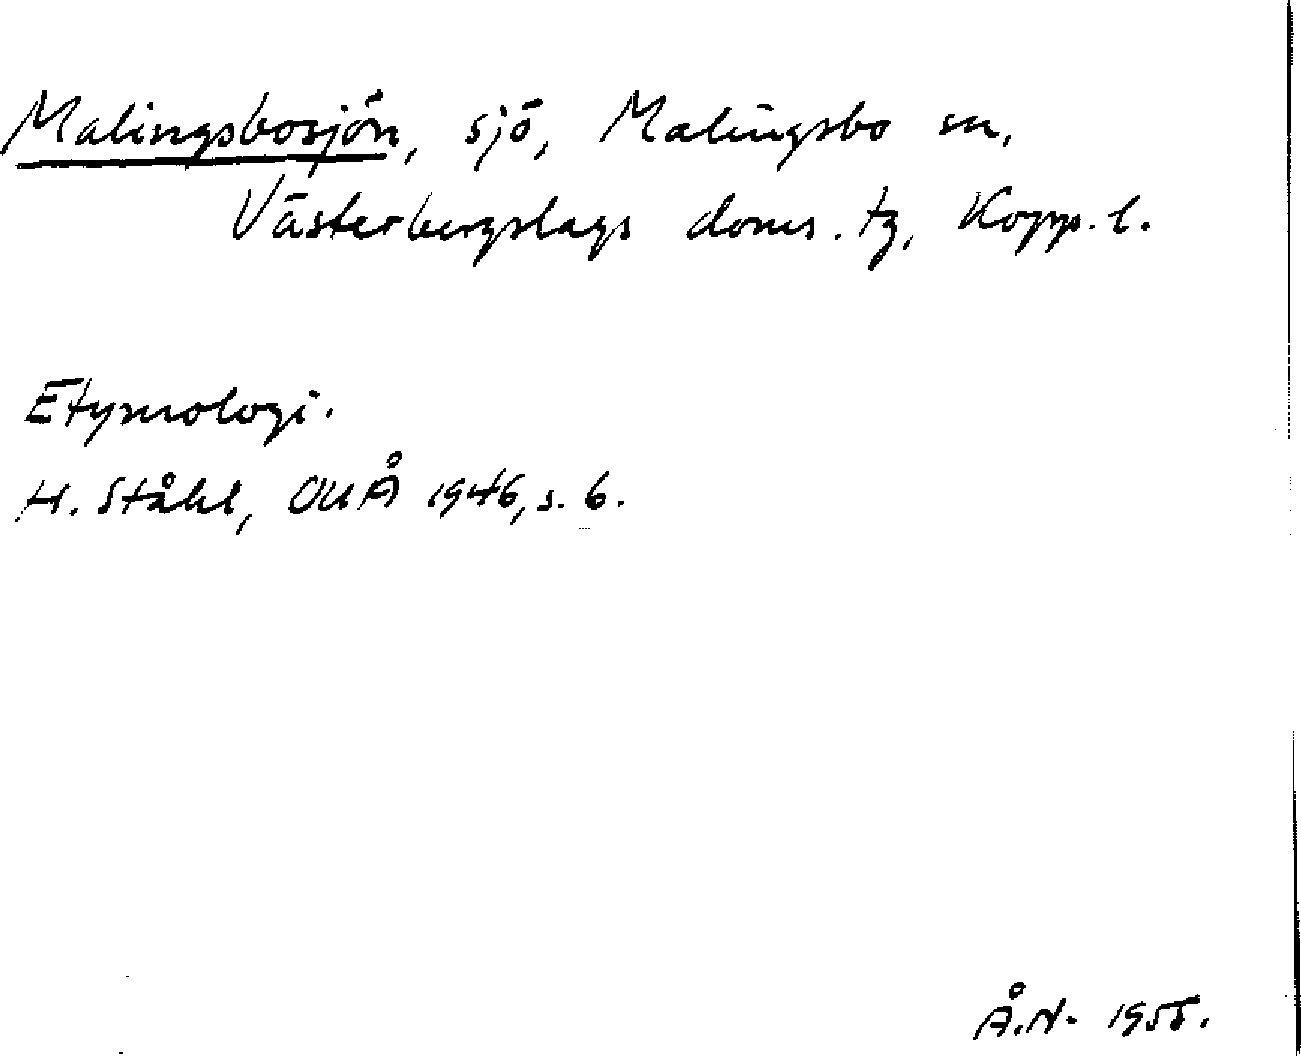 Malingsbosjön, sjö, Malingsbo sn,
Västerbergslags doms. tg, Kopp. l.
Etymologi.
H. Ståhl, OUÅ 1946, s. 6.
Å.N. 1955.